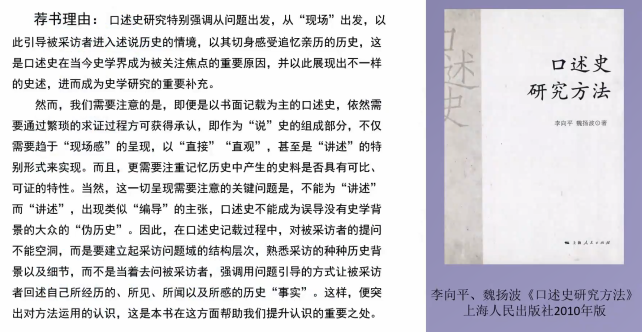 荐书理由：口述史研究特别强调从问题出发，从“现场”出发，以
此引导被采访者进入述说历史的情境，以其切身感受追忆亲历的历史，这
是口述史在当今史学界成为被关注焦点的重要原因，并以此展现出不一样
的史述，进而成为史学研究的重要补充。
然而，我们需要注意的是，即便是以书面记载为主的口述史，依然需
要通过繁琐的求证过程方可获得承认，即作为“说”史的组成部分，不仅
需要趋于“现场感”的呈现，以“直接”“直观”，甚至是“讲述”的特
别形式来实现。而且，更需要注重记忆历史中产生的史料是否具有可比、
可证的特性。当然，这一切呈现需要注意的关键问题是，不能为“讲述”
而“讲述”，出现类似“编导”的主张，口述史不能成为误导没有史学背
景的大众的“伪历史”。因此，在口述史记载过程中，对被采访者的提问
不能空洞，而是要建立起采访问题域的结构层次，熟悉采访的种种历史背
景以及细节，而不是当着去问被采访者，强调用问题引导的方式让被采访
者回述自己所经历的、所见、所闻以及所感的历史“事实”。这样，便突
出对方法运用的认识，这是本书在这方面帮助我们提升认识的重要之处。
口述史
口述史
研究方法
李向平 魏扬波◎著
上海人民出版社
李向平、魏扬波《口述史研究方法》
上海人民出版社2010年版